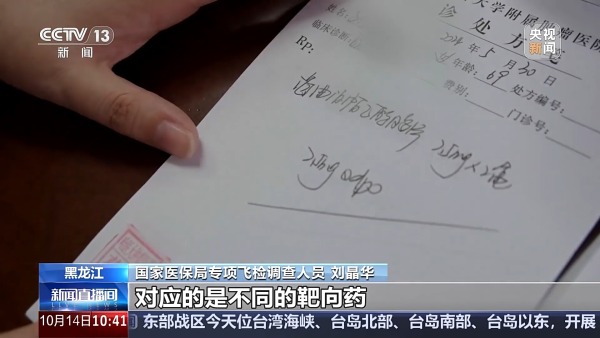 CCTV 13
新闻
央视新闻
大学附属肿瘤医院
诊 处 方
姓名:
年 5 月 30 日
临床诊断
年龄: 69 处方编号:
Rp:
费别: 门诊号:
25mg qd po
黑龙江
国家医保局专项飞检调查人员 刘晶华
新闻直播间
对应的是不同的靶向药
10月14日 10:41
东部战区今天位台湾海峡、台岛北部、台岛南部、台岛以东,开展